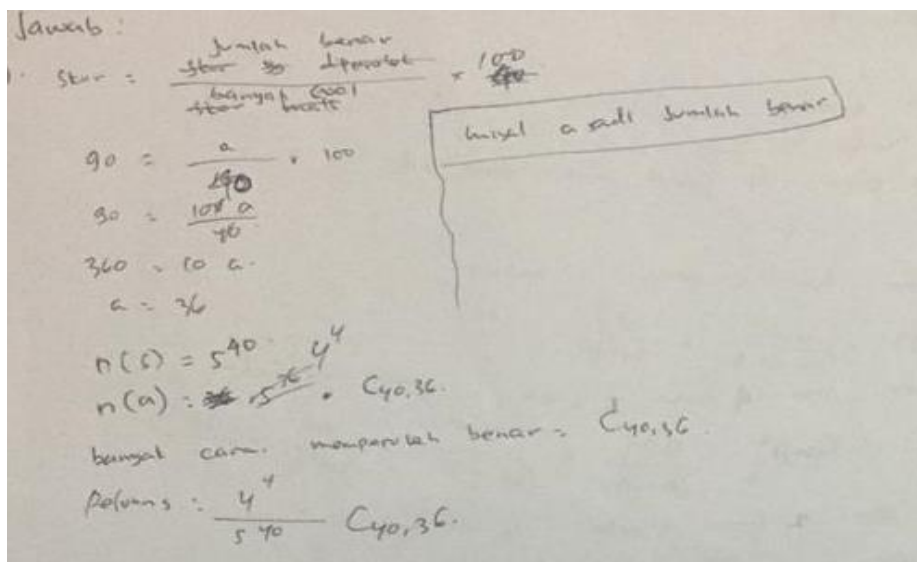 Jawab :
Skor = jumlah benar / banyak soal × 100
misal a jadi jumlah benar
90 = a / 40 × 100
90 = 100 a / 40
360 = 10 a.
a = 36
n(s) = 5^40
n(a) = 4^4 . C40,36.
banyak cara memperoleh benar = C40,36.
Peluang = 4^4 / 5^40 C40,36.